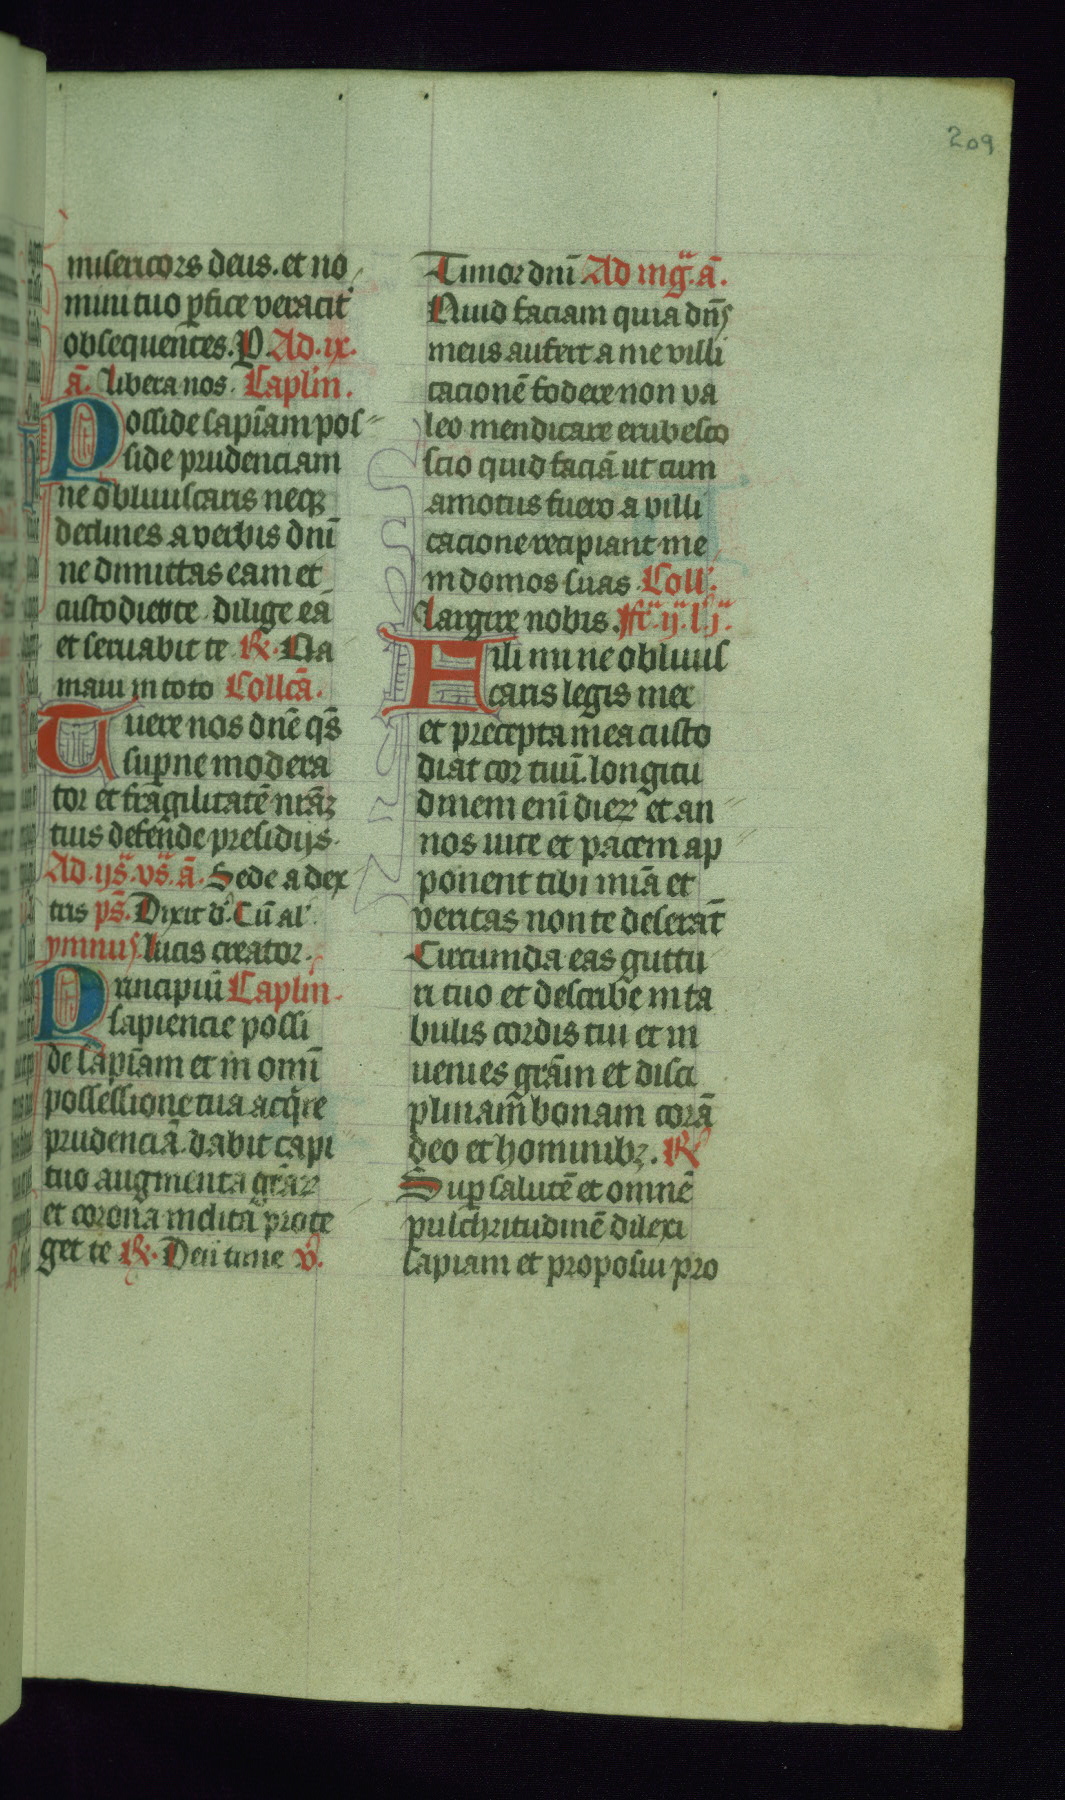 209
misericors deus. et no
mini tuo ꝑfice veracit᷑
obsequentes. P Ad .ix.
ā. Libera nos. Caplm̄.
Posside sapīam pos
side prudenciam
ne obliuiscaris neqꝫ
declines a verbis dnī
ne dimittas eam et
custodiet te dilige eā
et seruabit te R̸. Da
maui in toto Collcā.
Tuere nos dnē q̄s
suꝑne modera
tor et fragilitatē nrāꝫ
tuis defende presidijs.
Ad .ijs̄. vs̄. ā. Sede a dex
tris ps̄. Dixit d᷑. Cū al᷑
ymnus Lucis creator.
Principiū Caplm̄.
sapiencie possi
de sapīam et in omī
possessione tua acq̄re
prudenciā. dabit capi
tuo augmenta grāꝝ
et corona inclita prote
get te R̸. Deū time v᷑.
Timor dnī Ad mg̃. ā.
Quid faciam quia dn̄s
meus aufert a me villi
cacionē fodere non va
leo mendicare erubesco
scio quid faciā ut cum
amotus fuero a villi
cacione recipiant me
in domos suas. Coll᷑.
Largire nobis. fr̄. ij. l. j.
Fili mi ne obliuis
caris legis mee
et precepta mea custo
diat cor tuū. longitu
dinem enī dieꝝ et an
nos uite et pacem ap
ponent tibi miā et
veritas non te deserāt
Circumda eas guttu
ri tuo et describe in ta
bulis cordis tui et in
uenies grām et disci
plinam bonam corā
deo et hominibꝫ. R̸
Suꝑ salutē et omnē
pulchritudinē dilexi
sapiam et proposui pro